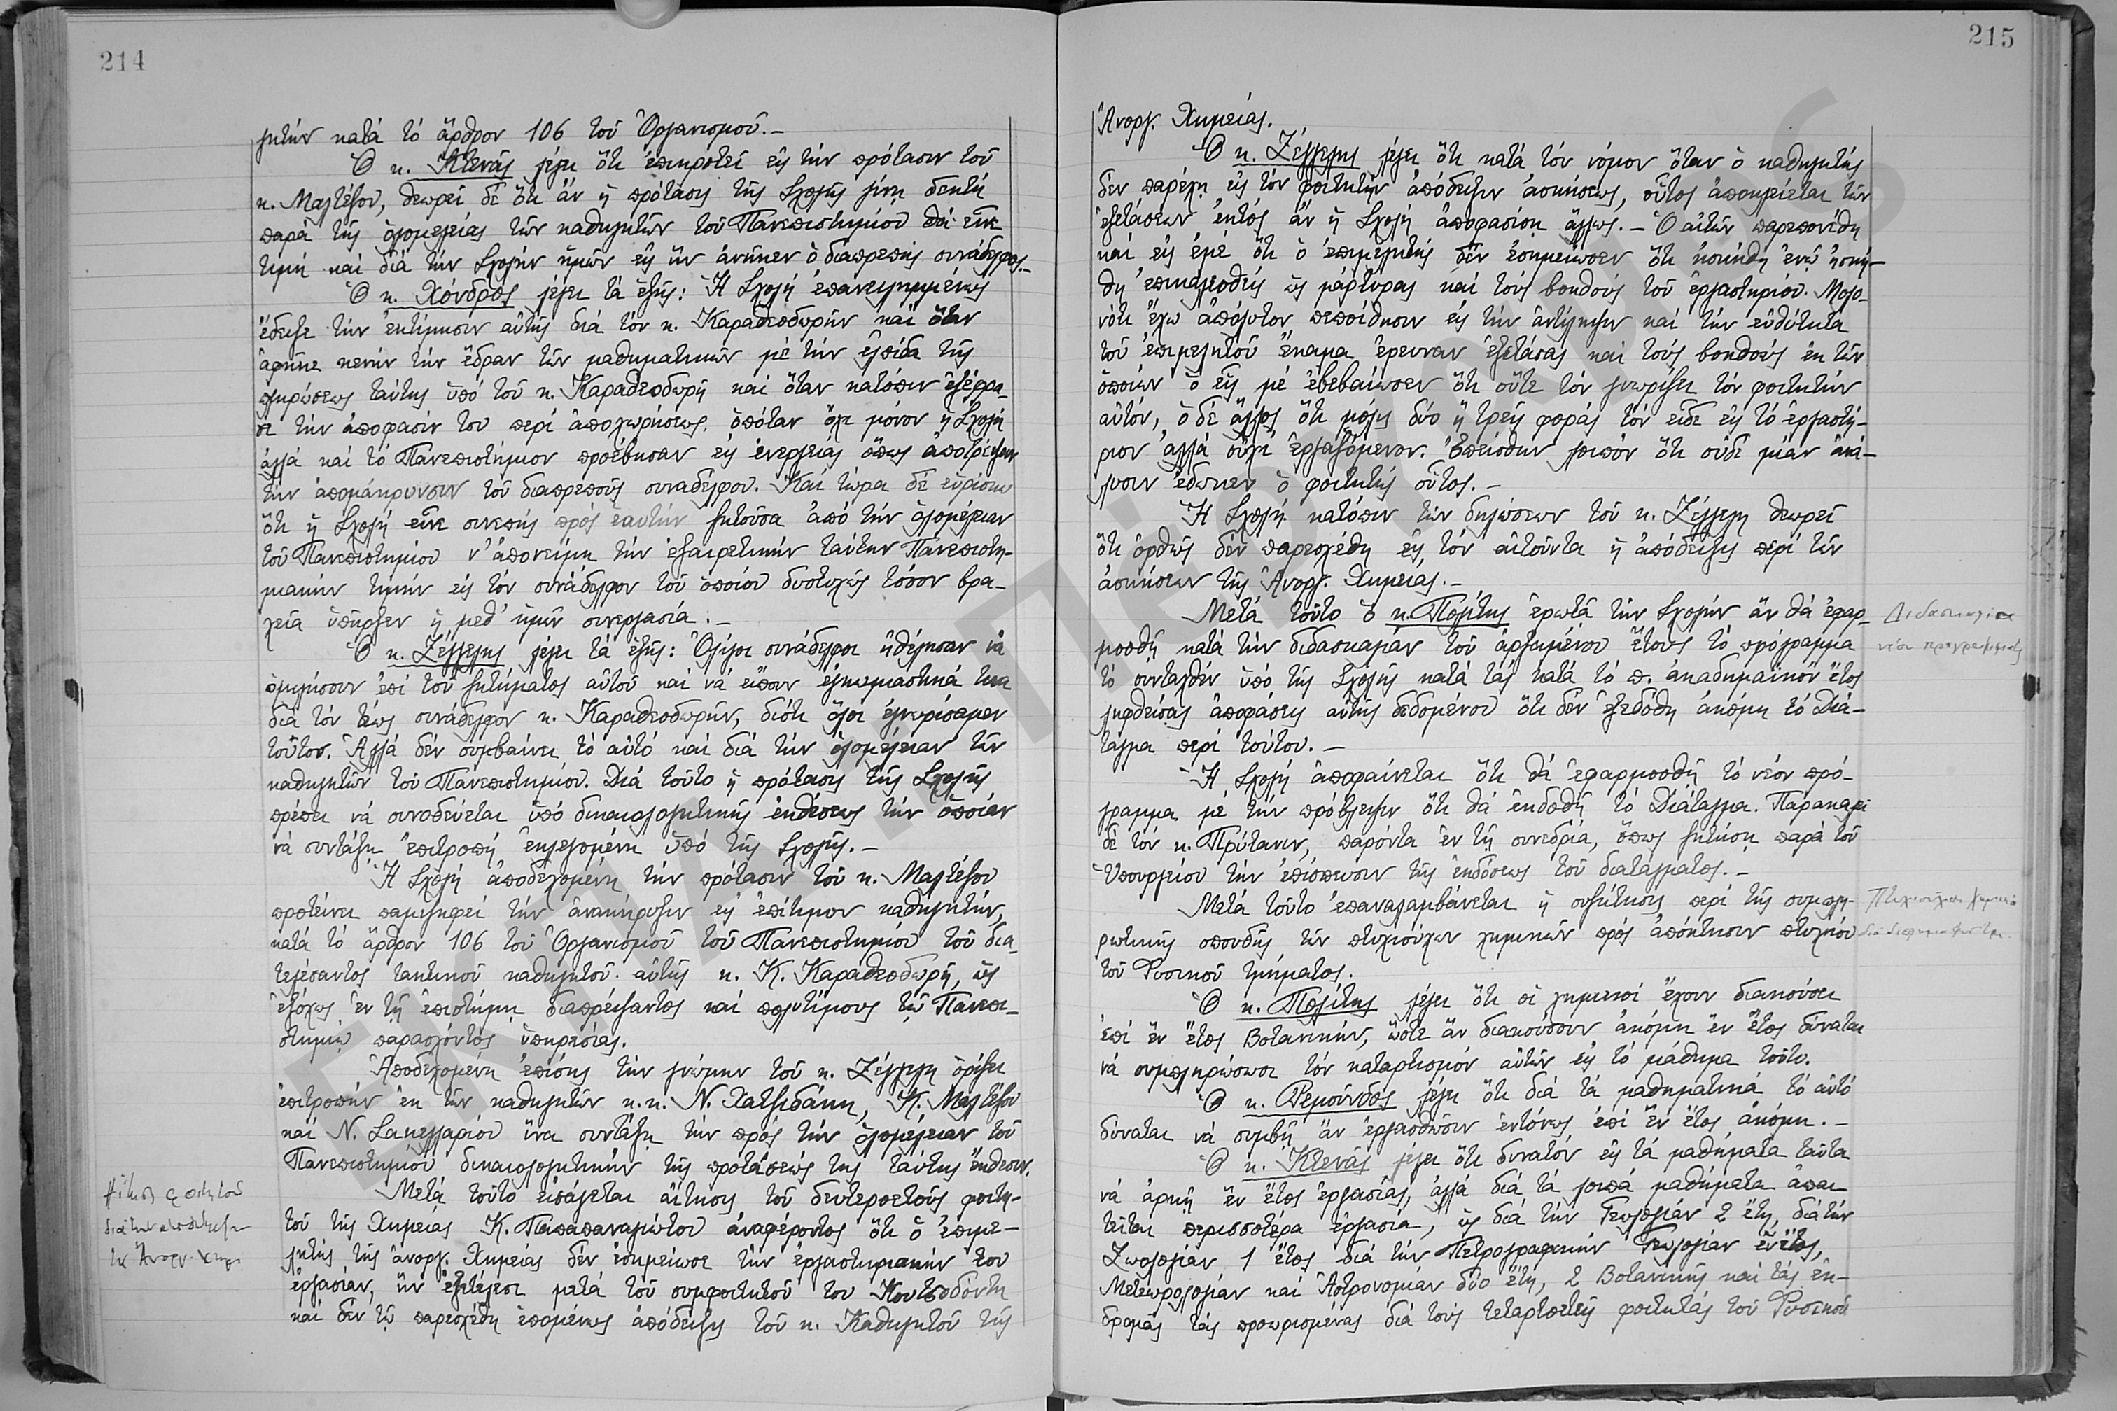 214
γητήν κατά τό ἄρθρον 106 τοῦ Ὀργανισμοῦ.—
Ὁ κ. Κτενᾶς λέγει ὅτι ἐπικροτεῖ εἰς τήν πρότασιν τοῦ
κ. Μαλτέζου, θεωρεῖ δέ ὅτι ἄν ἡ πρότασις τῆς Σχολῆς γίνῃ δεκτή
παρά τῆς ὁλομελείας τῶν καθηγητῶν τοῦ Πανεπιστημίου θά εἶνε
τιμή καί διά τήν Σχολήν ἡμῶν εἰς ἥν ἀνῆκεν ὁ διαπρεπής συνάδελφος.—
Ὁ κ. Χόνδρος λέγει τά ἑξῆς: Ἡ Σχολή ἐπανειλημμένως
ἔδειξε τήν ἐκτίμησιν αὐτῆς διά τόν κ. Καραθεοδωρῆν καί ὅταν
ἀφῆκε κενήν τήν ἕδραν τῶν μαθηματικῶν μέ τήν ἐλπίδα τῆς
πληρώσεως ταύτης ὑπό τοῦ κ. Καραθεοδωρῆ καί ὅταν κατόπιν ἐξέφρα-
σε τήν ἀπόφασίν του περί ἀποχωρήσεως, ὁπόταν ὄχι μόνον ἡ Σχολή
ἀλλά καί τό Πανεπιστήμιον προέβησαν εἰς ἐνεργείας ὅπως ἀποτρέψουν
τήν ἀπομάκρυνσιν τοῦ διαπρεποῦς συναδέλφου. Καί τώρα δέ εὑρίσκω
ὅτι ἡ Σχολή εἶνε συνεπής πρός ἑαυτήν ζητοῦσα ἀπό τήν ὁλομέλειαν
τοῦ Πανεπιστημίου ν' ἀπονείμῃ τήν ἐξαιρετικήν ταύτην Πανεπιστη-
μιακήν τιμήν εἰς τόν συνάδελφον τοῦ ὁποίου δυστυχῶς τόσον βρα-
χεῖα ὑπῆρξεν ἡ μεθ' ἡμῶν συνεργασία.—
Ὁ κ. Ζέγγελης λέγει τά ἑξῆς: Ὀλίγοι συνάδελφοι ἠθέλησαν νά
ὁμιλήσουν ἐπί τοῦ ζητήματος αὐτοῦ καί νά εἴπουν ἐγκωμιαστικά τινα
διά τόν τέως συνάδελφον κ. Καραθεοδωρῆν, διότι ὅλοι ἐγνωρίσαμεν
τοῦτον. Ἀλλά δέν συμβαίνει τό αὐτό καί διά τήν ὁλομέλειαν τῶν
καθηγητῶν τοῦ Πανεπιστημίου. Διά τοῦτο ἡ πρότασις τῆς Σχολῆς
πρέπει νά συνοδεύεται ὑπό δικαιολογητικῆς ἐκθέσεως τήν ὁποίαν
νά συντάξῃ ἐπιτροπή ἐκλεγομένη ὑπό τῆς Σχολῆς.—
Ἡ Σχολή ἀποδεχομένη τήν πρότασιν τοῦ κ. Μαλτέζου
προτείνει παμψηφεί τήν ἀνακήρυξιν εἰς ἐπίτιμον καθηγητήν,
κατά τό ἄρθρον 106 τοῦ Ὀργανισμοῦ τοῦ Πανεπιστημίου τοῦ δια-
τελέσαντος τακτικοῦ καθηγητοῦ αὐτῆς κ. Κ. Καραθεοδωρῆ, ὡς
ἐξόχως ἐν τῇ ἐπιστήμῃ διαπρέψαντος καί πολυτίμους τῷ Πανεπι-
στημίῳ παρασχόντος ὑπηρεσίας.
Ἀποδεχομένη ἐπίσης τήν γνώμην τοῦ κ. Ζέγγελη ὁρίζει
ἐπιτροπήν ἐκ τῶν καθηγητῶν κ.κ. Ν. Χατζιδάκη, Κ. Μαλτέζου
καί Ν. Σακελλαρίου ἵνα συντάξῃ τήν πρός τήν ὁλομέλειαν τοῦ
Πανεπιστημίου δικαιολογητικήν τῆς προτάσεώς της ταύτης ἔκθεσιν.
Μετά τοῦτο εἰσάγεται αἴτησις τοῦ δευτεροετοῦς φοιτη-
τοῦ τῆς Χημείας Κ. Παπαπαναγιώτου ἀναφέροντος ὅτι ὁ ἐπιμε-
λητής τῆς ἀνοργ. Χημείας δέν ἐσημείωσε τήν ἐργαστηριακήν του
ἐργασίαν, ἥν ἐξετέλεσε μετά τοῦ συμφοιτητοῦ του Κουτσοδόντη
καί δέν τῷ παρεσχέθη ἑπομένως ἀπόδειξις τοῦ κ. Καθηγητοῦ τῆς
Αἴτησις φοιτητοῦ
διά τήν ἀπόδειξιν
τῆς Ἀνοργ. Χημ.
215
Ἀνοργ. Χημείας.
Ὁ κ. Ζέγγελης λέγει ὅτι κατά τόν νόμον ὅταν ὁ καθηγητής
δέν παρέχῃ εἰς τόν φοιτητήν ἀπόδειξιν ἀσκήσεως, οὗτος ἀποκλείεται τῶν
ἐξετάσεων ἐκτός ἄν ἡ Σχολή ἀποφασίσῃ ἄλλως.— Ὁ αἰτῶν παρεπονέθη
καί εἰς ἐμέ ὅτι ὁ ἐπιμελητής δέν ἐσημείωσεν ὅτι ἠσκήθη ἐνῷ ἠσκή-
θη ἐπικαλεσθείς ὡς μάρτυρας καί τούς βοηθούς τοῦ ἐργαστηρίου. Μολο-
νότι ἔχω ἀπόλυτον πεποίθησιν εἰς τήν ἀντίληψιν καί τήν εὐθύτητα
τοῦ ἐπιμελητοῦ ἔκαμα ἔρευναν ἐξετάσας καί τούς βοηθούς ἐκ τῶν
ὁποίων ὁ εἷς μέ ἐβεβαίωσεν ὅτι οὔτε τόν γνωρίζει τόν φοιτητήν
αὐτόν, ὁ δέ ἄλλος ὅτι μόλις δύο ἤ τρεῖς φοράς τόν εἶδε εἰς τό ἐργαστή-
ριον ἀλλά οὐχί ἐργαζόμενον. Ἐπείσθην λοιπόν ὅτι οὐδέ μίαν ἀνά-
λυσιν ἔδωκεν ὁ φοιτητής οὗτος.—
Ἡ Σχολή κατόπιν τῶν δηλώσεων τοῦ κ. Ζέγγελη θεωρεῖ
ὅτι ὀρθῶς δέν παρεσχέθη εἰς τόν αἰτοῦντα ἡ ἀπόδειξις περί τῶν
ἀσκήσεων τῆς Ἀνοργ. Χημείας.—
Μετά τοῦτο ὁ κ. Πολίτης ἐρωτᾷ τήν Σχολήν ἄν θά ἐφαρ-
μοσθῇ κατά τήν διδασκαλίαν τοῦ ἀρχομένου ἔτους τό πρόγραμμα
τό συνταχθέν ὑπό τῆς Σχολῆς κατά τάς κατά τό π. ἀκαδημαϊκόν ἔτος
ληφθείσας ἀποφάσεις αὐτῆς δεδομένου ὅτι δέν ἐξεδόθη ἀκόμη τό Διά-
ταγμα περί τούτου.—
Ἡ Σχολή ἀποφαίνεται ὅτι θά ἐφαρμοσθῇ τό νέον πρό-
γραμμα μέ τήν πρόβλεψιν ὅτι θά ἐκδοθῇ τό Διάταγμα. Παρακαλεῖ
δέ τόν κ. Πρύτανιν, παρόντα ἐν τῇ συνεδρίᾳ, ὅπως ζητήσῃ παρά τοῦ
Ὑπουργείου τήν ἐπίσπευσιν τῆς ἐκδόσεως τοῦ διατάγματος.—
Μετά τοῦτο ἐπαναλαμβάνεται ἡ συζήτησις περί τῆς συμπλη-
ρωτικῆς σπουδῆς τῶν πτυχιούχων χημικῶν πρός ἀπόκτησιν πτυχίου
τοῦ Φυσικοῦ τμήματος.
Ὁ κ. Πολίτης λέγει ὅτι οἱ χημικοί ἔχουν διακούσει
ἐπί ἕν ἔτος Βοτανικήν, ὥστε ἄν διακούσουν ἀκόμη ἕν ἔτος δύναται
νά συμπληρώσωσι τόν καταρτισμόν αὐτῶν εἰς τό μάθημα τοῦτο.
Ὁ κ. Ρεμοῦνδος λέγει ὅτι διά τά μαθηματικά τό αὐτό
δύναται νά συμβῇ ἄν ἐργασθῶσιν ἐντόνως ἐπί ἕν ἔτος ἀκόμη.—
Ὁ κ. Κτενᾶς λέγει ὅτι δυνατόν εἰς τά μαθήματα ταῦτα
νά ἀρκῇ ἕν ἔτος ἐργασίας, ἀλλά διά τά λοιπά μαθήματα ἀπαι-
τεῖται περισσοτέρα ἐργασία, ὡς διά τήν Γεωλογίαν 2 ἔτη, διά τήν
Ζωολογίαν 1 ἔτος διά τήν Πετρογραφικήν Γεωλογίαν ἕν ἔτος,
Μετεωρολογίαν καί Ἀστρονομίαν δύο ἔτη, 2 Βοτανικῆς καί τάς ἐκ-
δρομάς τάς προωρισμένας διά τούς τεταρτοετεῖς φοιτητάς τοῦ Φυσικοῦ
Διδασκαλία
νέου προγράμματος
Πτυχιούχοι χημικοί